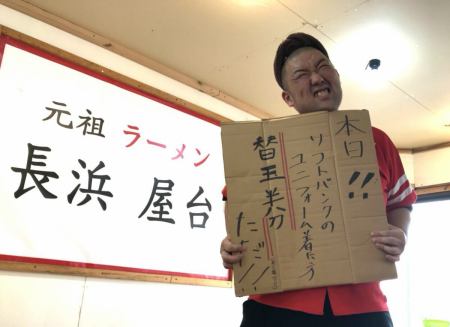 元祖 ラーメン
長浜 屋台
本日!!
ソフトバンクの
ユニフォーム着たら
替玉半分
ただ!!